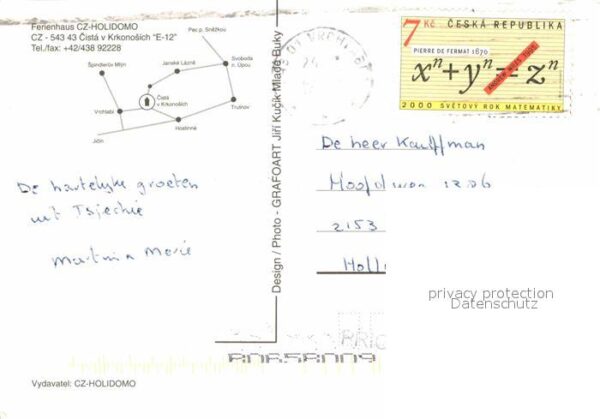 Ferienhaus CZ-HOLIDOMO
CZ - 543 43 Čistá v Krkonoších "E-12"
Tel./fax: +42/438 92228
Pec p. Sněžkou
Špindlerův Mlýn
Janské Lázně
Svoboda
n. Úpou
Čistá
v Krkonoších
Vrchlabí
Trutnov
Hostinné
Jičín
De hartelijke groeten
uit Tsjechië
Martin Marie
Design / Photo - GRAFOART Jiří Kučík Mladé Buky
7 Kč ČESKÁ REPUBLIKA
PIERRE DE FERMAT 1670
xⁿ+yⁿ=zⁿ
ANDREW WILES 1995
2000 SVĚTOVÝ ROK MATEMATIKY
De heer Kauffman
Hoofdweg 1206
2153
Holl
privacy protection
Datenschutz
Vydavatel: CZ-HOLIDOMO